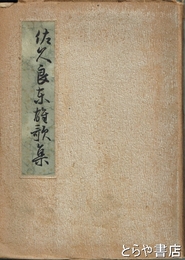 佐久良東雄歌集
© とらや書店